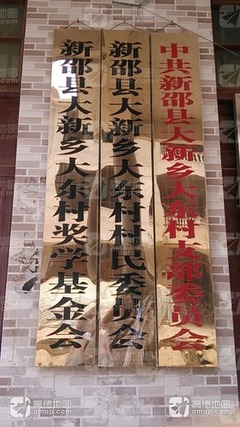 中共新邵县大新乡大东村支部委员会
新邵县大新乡大东村村民委员会
新邵县大新乡大东村奖学基金会
高德地图
amap.com
高德地图
amap.com